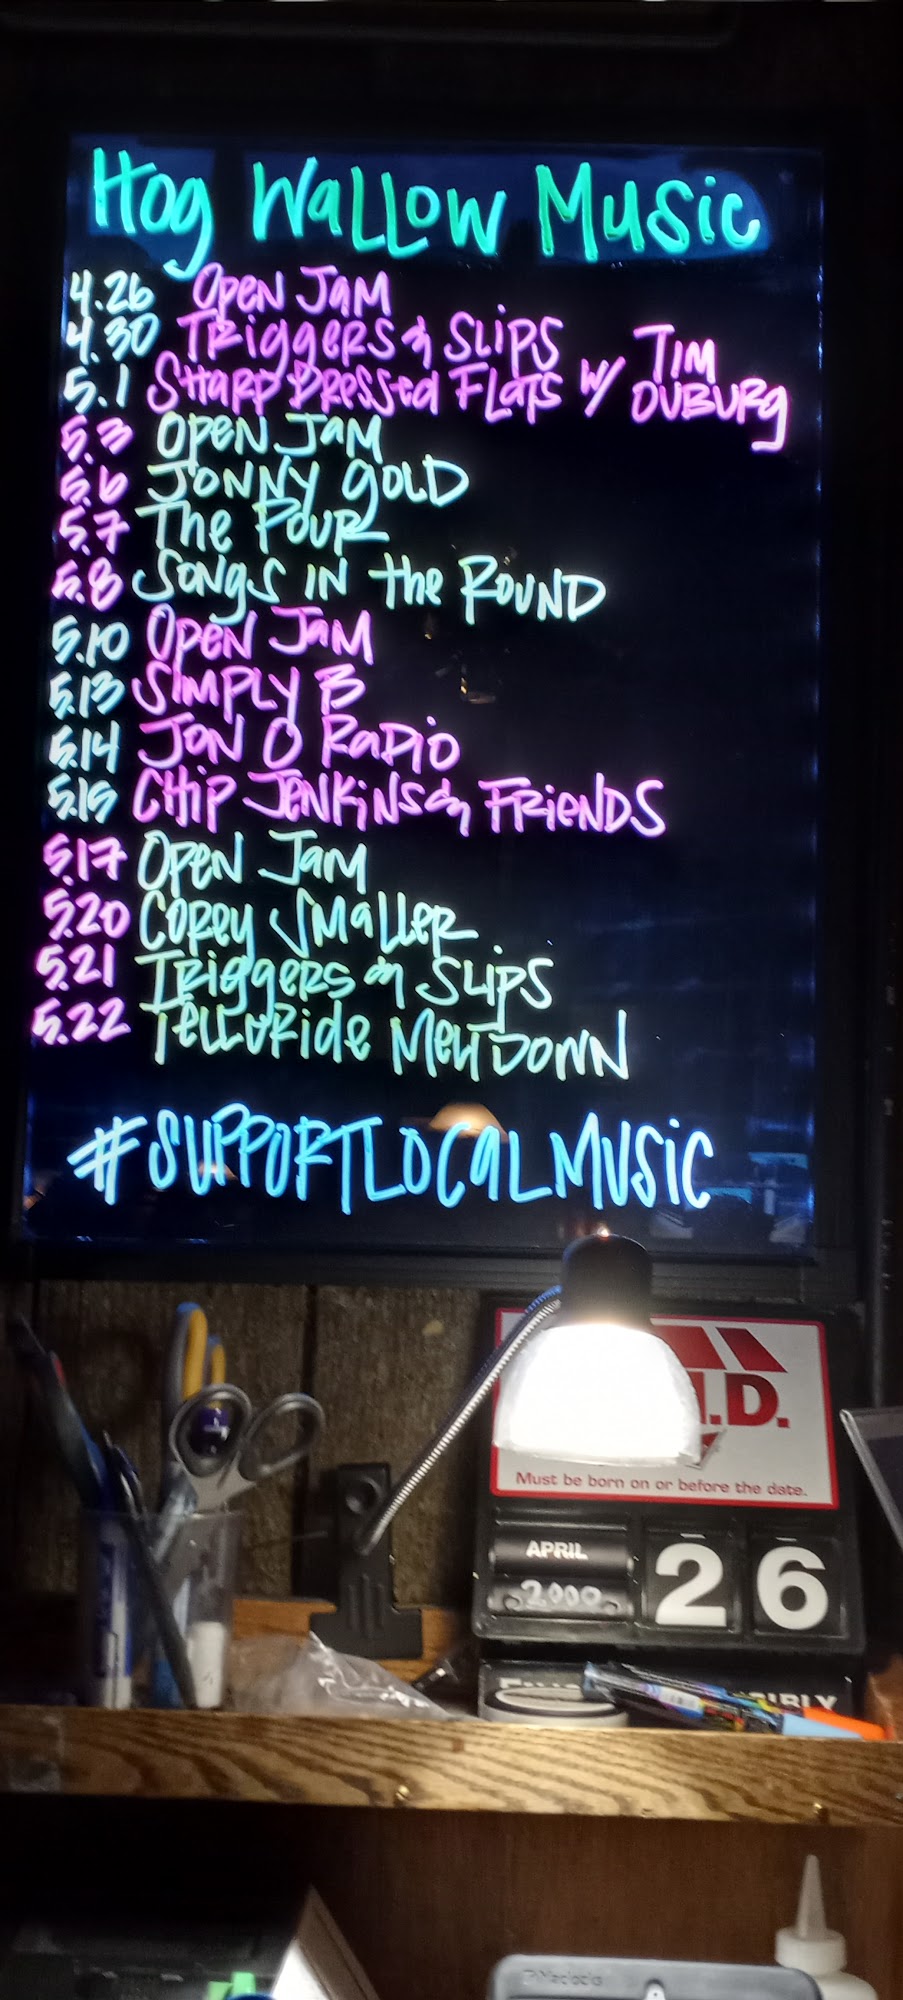 Hog Wallow Music
4.26 Open Jam
4.30 Triggers & Slips
5.1 Sharp Dressed Flats w/ Tim Ouburg
5.3 Open Jam
5.6 Jonny Gold
5.7 The Pour
5.8 Songs in the Round
5.10 Open Jam
5.13 Simply B
5.14 Jon O Radio
5.15 Chip Jenkins & Friends
5.17 Open Jam
5.20 Corey Smaller
5.21 Triggers & Slips
5.22 Telluride Meltdown
#SUPPORTLOCALMUSIC
I.D.
Must be born on or before the date.
APRIL 26
2000
Maclocks